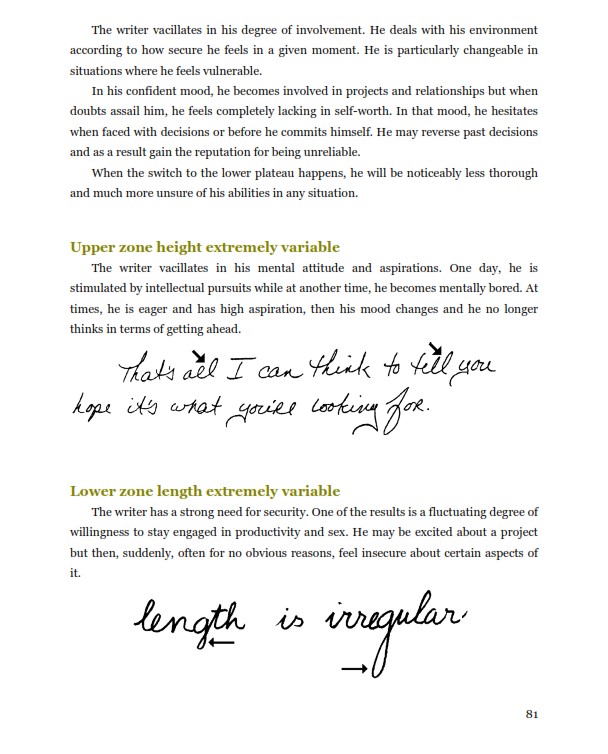 The writer vacillates in his degree of involvement. He deals with his environment
according to how secure he feels in a given moment. He is particularly changeable in
situations where he feels vulnerable.
In his confident mood, he becomes involved in projects and relationships but when
doubts assail him, he feels completely lacking in self-worth. In that mood, he hesitates
when faced with decisions or before he commits himself. He may reverse past decisions
and as a result gain the reputation for being unreliable.
When the switch to the lower plateau happens, he will be noticeably less thorough
and much more unsure of his abilities in any situation.
Upper zone height extremely variable
The writer vacillates in his mental attitude and aspirations. One day, he is
stimulated by intellectual pursuits while at another time, he becomes mentally bored. At
times, he is eager and has high aspiration, then his mood changes and he no longer
thinks in terms of getting ahead.
That's all I can think to tell you
hope it's what you're looking for.
Lower zone length extremely variable
The writer has a strong need for security. One of the results is a fluctuating degree of
willingness to stay engaged in productivity and sex. He may be excited about a project
but then, suddenly, often for no obvious reasons, feel insecure about certain aspects of
it.
length is irregular.
81